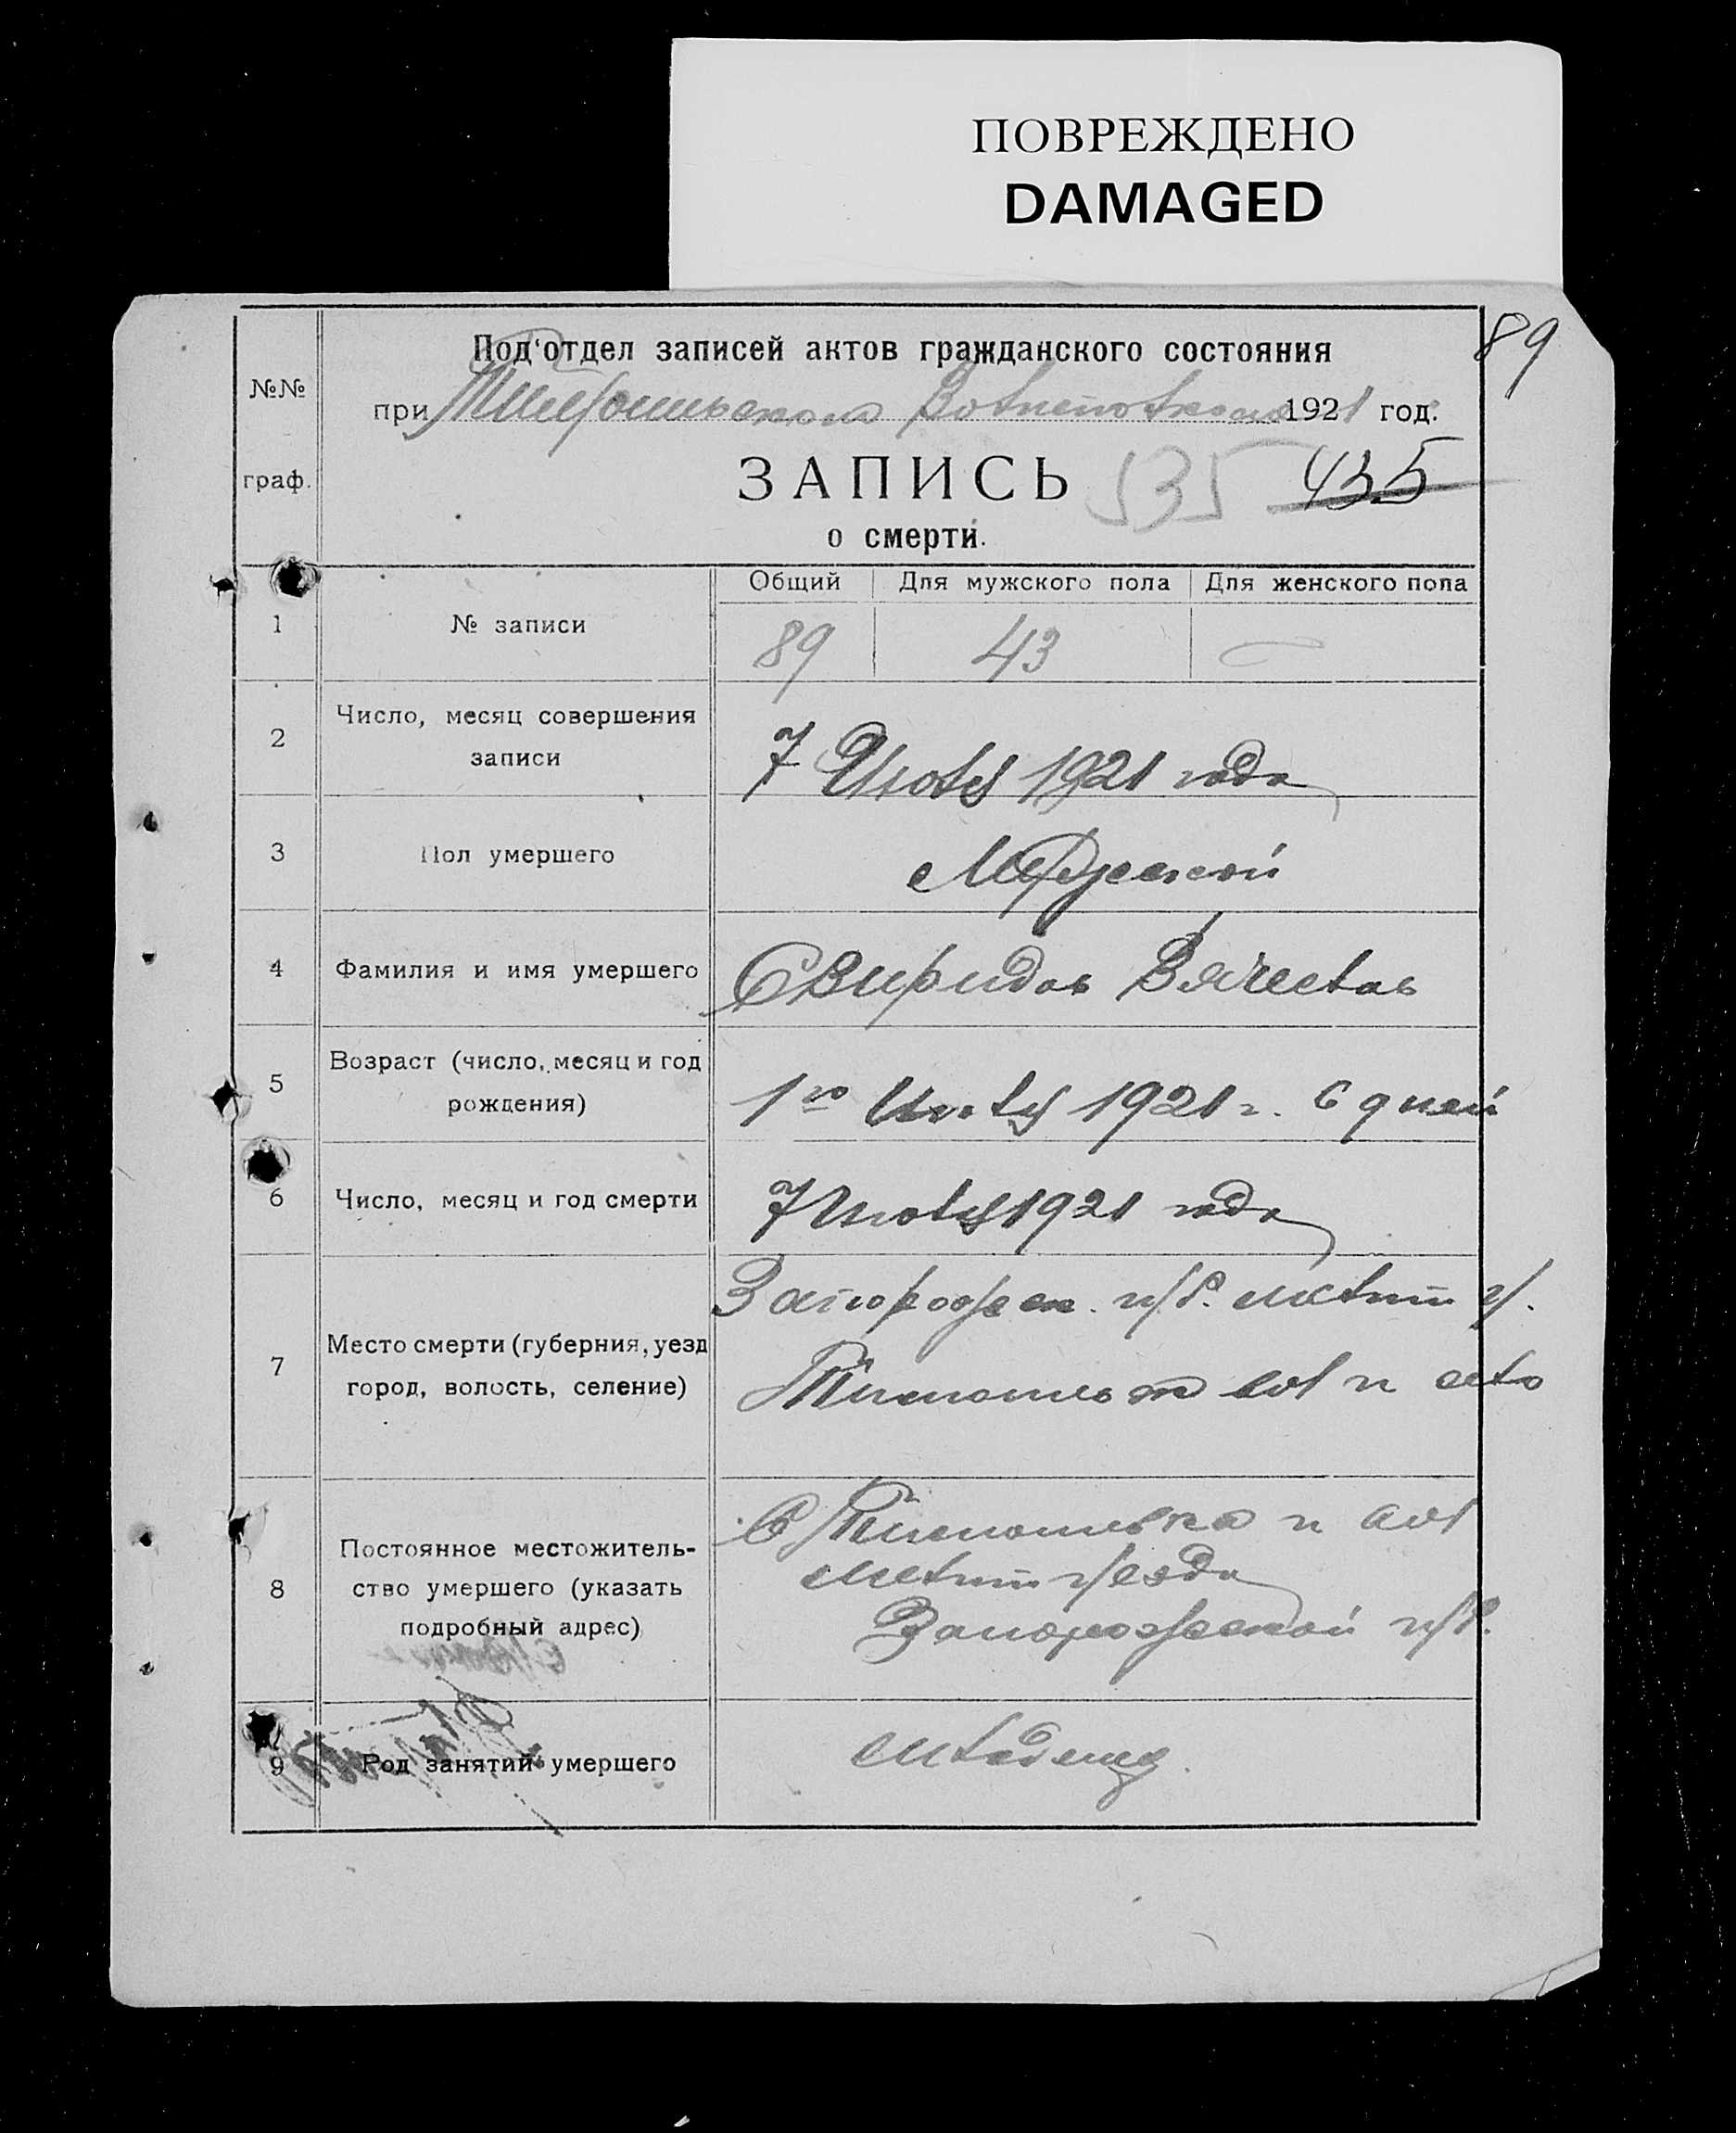 ПОВРЕЖДЕНО
DAMAGED
89
№№
граф.
Под'отдел записей актов гражданского состояния
при Тимошовском Волисполкоме 1921 год.
ЗАПИСЬ 535 435
о смерти.
Общий Для мужского пола Для женского пола
1 № записи 89 43 —
2 Число, месяц совершения
записи
7 Июля 1921 года
3 Пол умершего Мужской
4 Фамилия и имя умершего Свиридов Вячеслав
5 Возраст (число, месяц и год
рождения)
1го Июля 1921 г. 6 дней
6 Число, месяц и год смерти 7 Июля 1921 года
7 Место смерти (губерния, уезд
город, волость, селение)
Запорожск. губ. Мелит у.
вол и село
8 Постоянное местожитель-
ство умершего (указать
подробный адрес)
С Тимошовка и вол
Мелит уезда
Запорожской губ.
9 Род занятий умершего младенец.